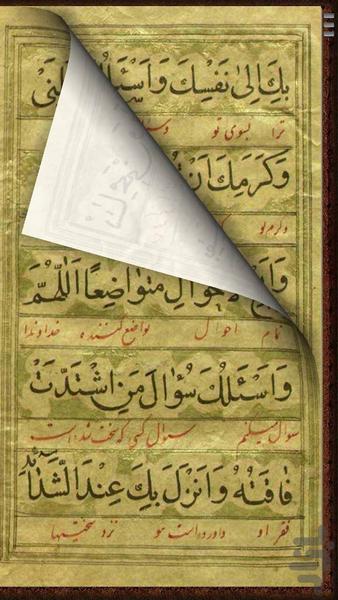 بِكَ اِلىٰ نَفْسِكَ وَاَسْئَلُكَ
ترا بسوی تو
وَكَرَمِكَ اَنْ
وکرم تو
اَلْاَحْوالِ مُتَواضِعًا اَللّٰهُمَّ
تمام احوال تواضع کننده خداوندا
وَاَسْئَلُكَ سُؤالَ مَنِ اشْتَدَّتْ
سوال میکنم سوال کسی که سخت شده است
فاقَتُهُ وَاَنْزَلَ بِكَ عِنْدَ الشَّدائِدِ
فقر او و اورده است بتو نزد سختیها